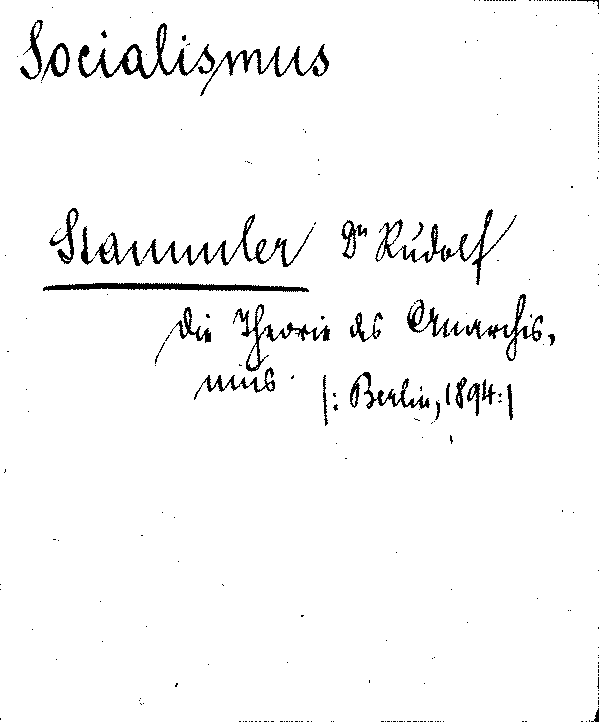 Socialismus
Stammler Dr Rudolf
die Theorie des Anarchis,
mus. |: Berlin, 1894 :|